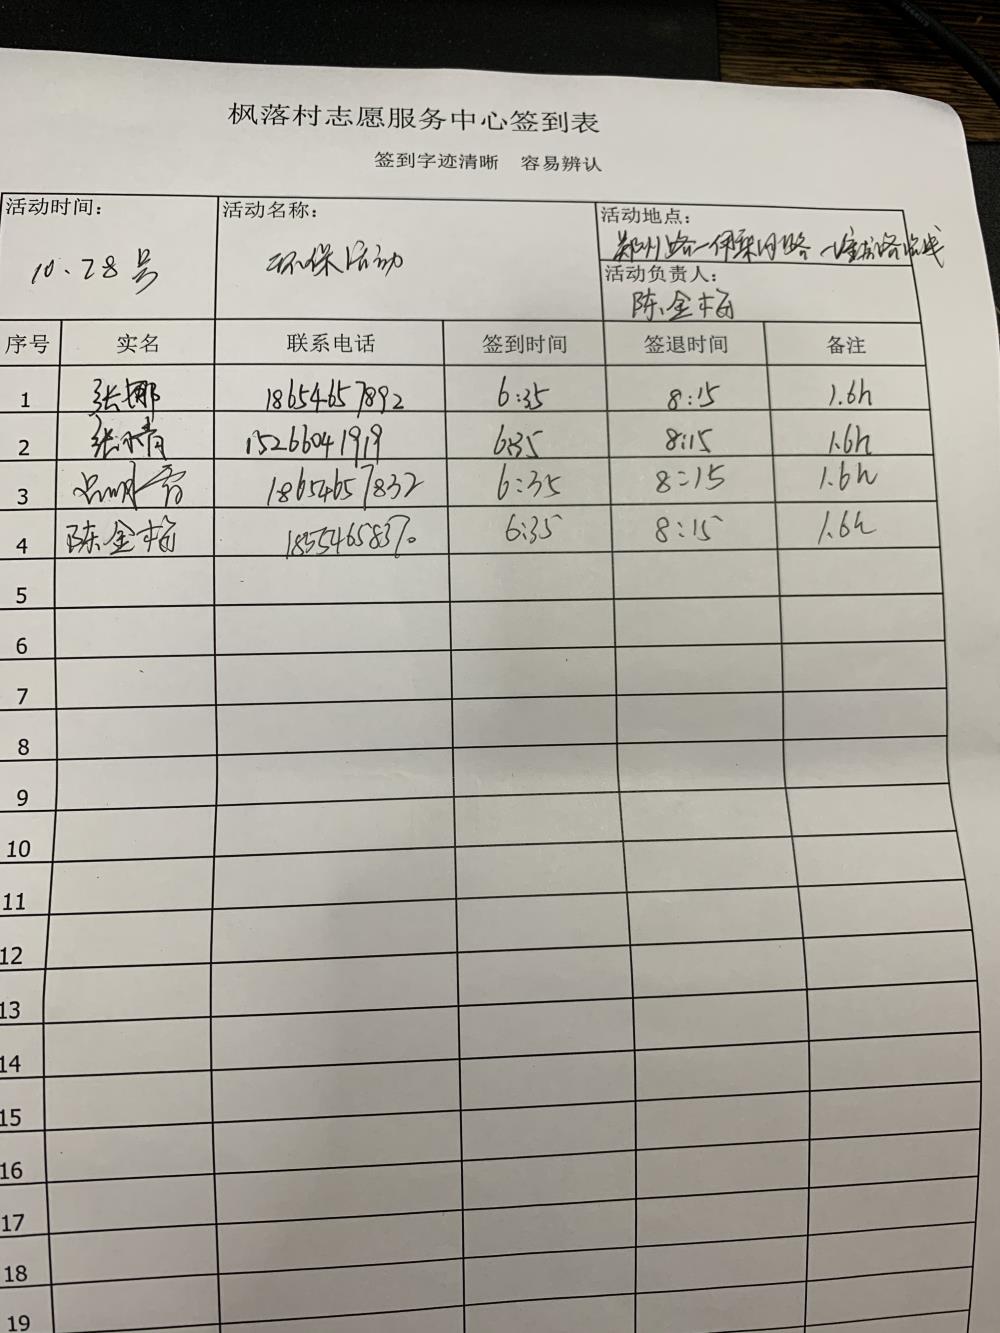 枫落村志愿服务中心签到表
签到字迹清晰 容易辨认
活动时间： 活动名称： 活动地点：
10.28号 环保活动 郑州路
活动负责人：
陈金梅
序号 实名 联系电话 签到时间 签退时间 备注
1 张娜 18654657892 6:35 8:15 1.6h
2 张 15266041919 6:35 8:15 1.6h
3 18654657832 6:35 8:15 1.6h
4 陈金梅 6:35 8:15 1.6h
5
6
7
8
9
10
11
12
13
14
15
16
17
18
19